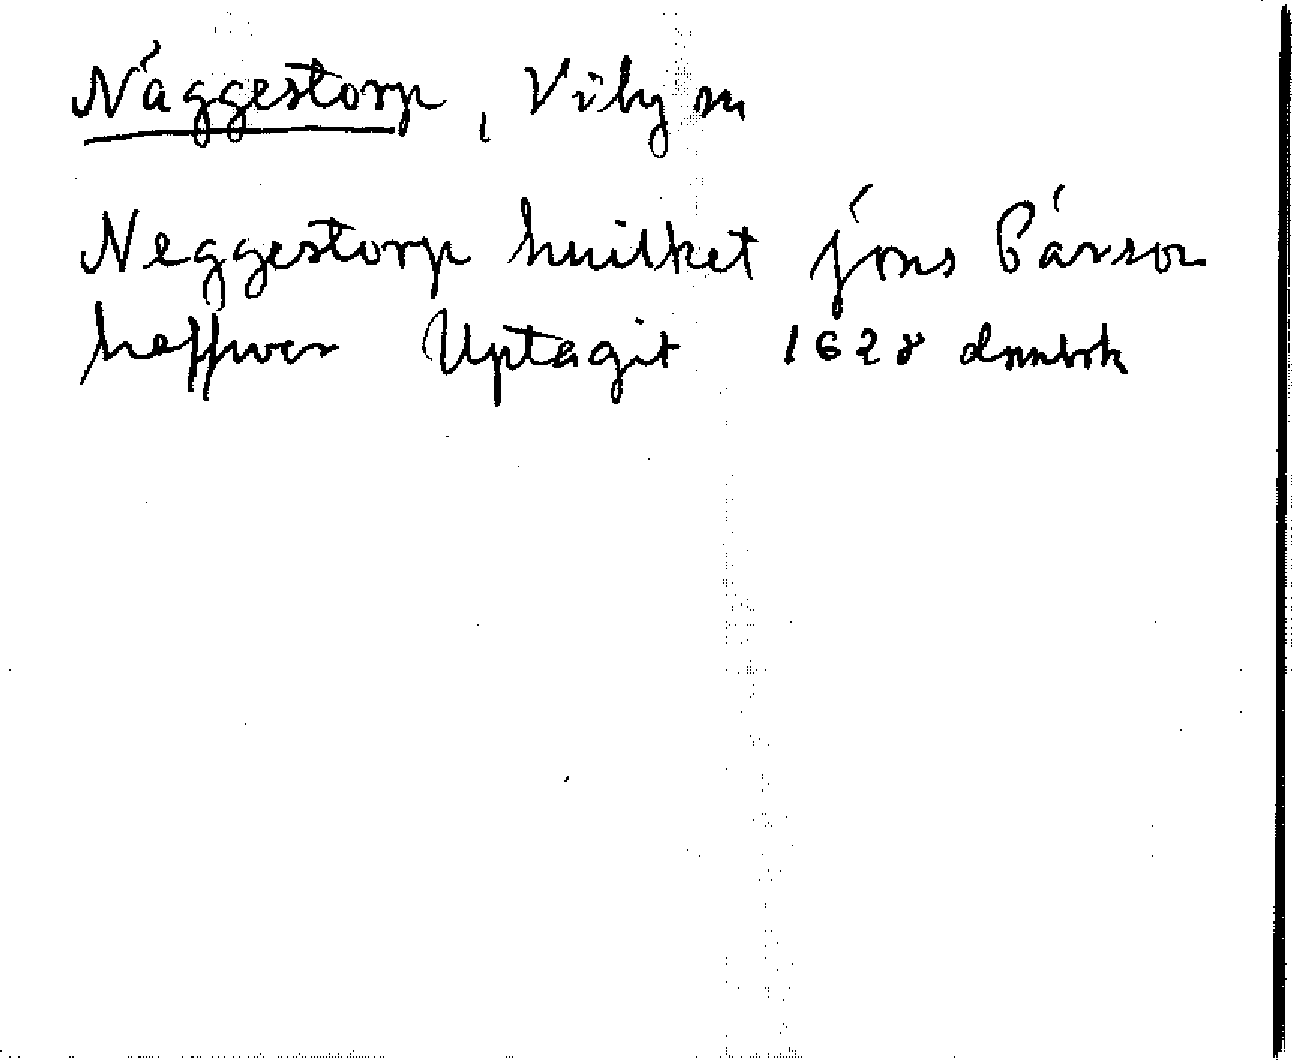 Näggestorp, Viby sn
Neggestorp huilket jöns Pärson
haffwer Uptagit 1628 dombok